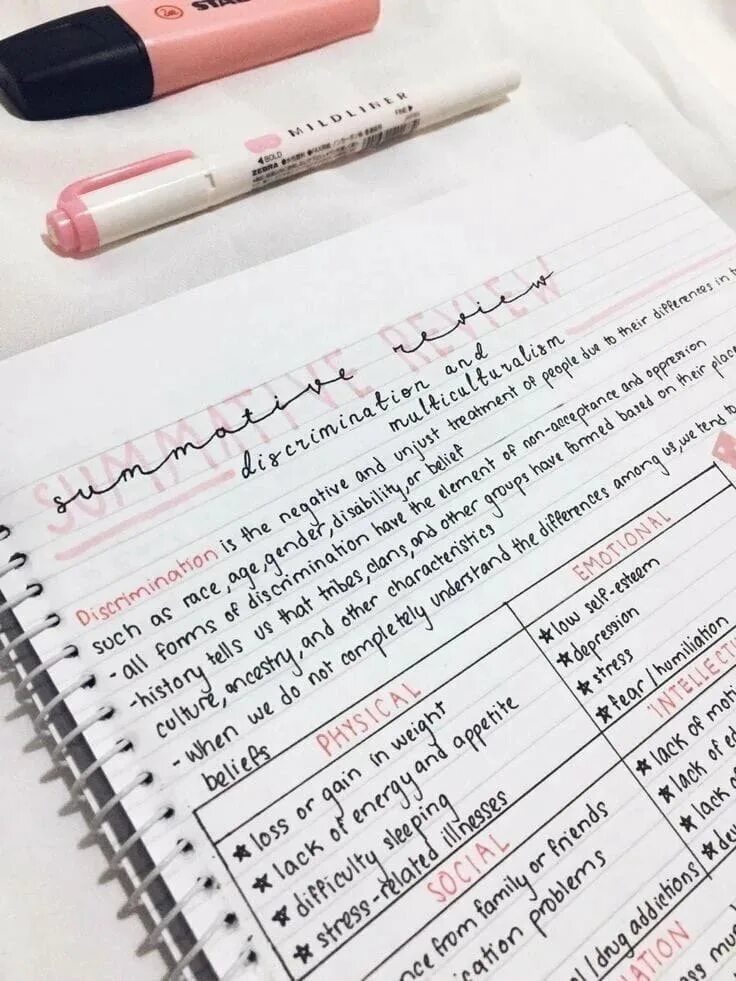 STAB
MILDLINER
BOLD
FINE
ZEBRA
SUMMATIVE REVIEW
summative review
discrimination and
multiculturalism
Discrimination is the negative and unjust treatment of people due to their differences in
such as race, age, gender, disability, or belief
-all forms of discrimination have the element of non-acceptance and oppression
-history tells us that tribes, clans, and other groups have formed based on their place
culture, ancestry, and other characteristics
-When we do not completely understand the differences among us, we tend to
beliefs
PHYSICAL
★loss or gain in weight
★lack of energy and appetite
★difficulty sleeping
★stress-related illnesses
EMOTIONAL
★low self-esteem
★depression
★stress
★fear/humiliation
SOCIAL
from family or friends
problems
/drug addictions
INTELLECTU
★lack of moti
★lack of ed
★lack of
★dev
ATION